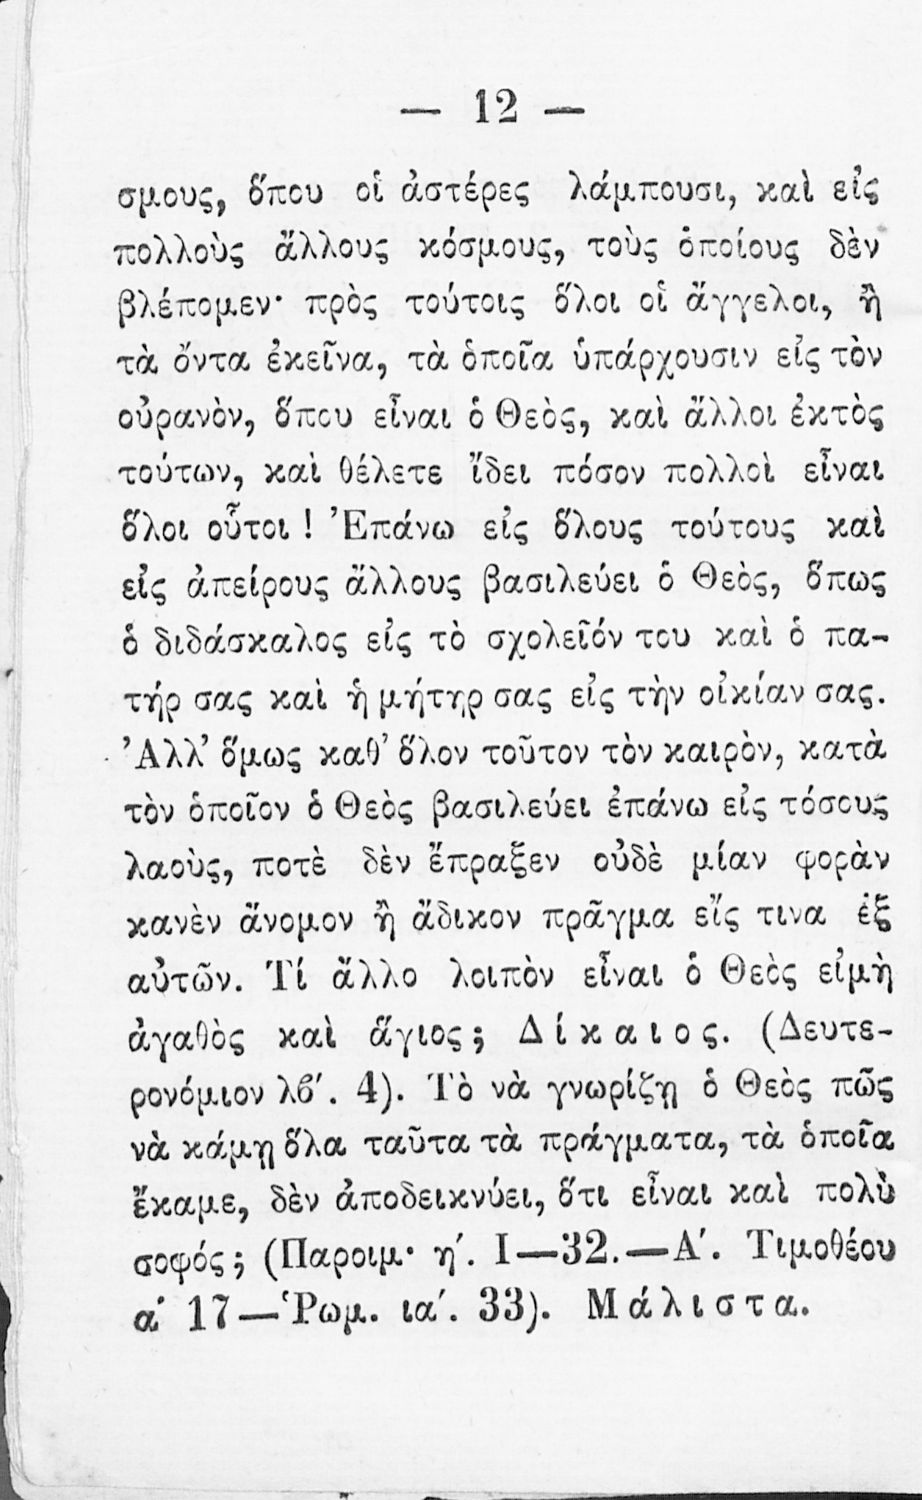 — 12 —
σμους, ὅπου οἱ ἀστέρες λάμπουσι, καὶ εἰς
πολλοὺς ἄλλους κόσμους, τοὺς ὁποίους δὲν
βλέπομεν· πρὸς τούτοις ὅλοι οἱ ἄγγελοι, ἢ
τὰ ὄντα ἐκεῖνα, τὰ ὁποῖα ὑπάρχουσιν εἰς τὸν
οὐρανὸν, ὅπου εἶναι ὁ Θεὸς, καὶ ἄλλοι ἐκτὸς
τούτων, καὶ θέλετε ἴδει πόσον πολλοὶ εἶναι
ὅλοι οὗτοι ! Ἐπάνω εἰς ὅλους τούτους καὶ
εἰς ἀπείρους ἄλλους βασιλεύει ὁ Θεὸς, ὅπως
ὁ διδάσκαλος εἰς τὸ σχολεῖόν του καὶ ὁ πα-
τήρ σας καὶ ἡ μήτηρ σας εἰς τὴν οἰκίαν σας.
Ἀλλ’ ὅμως καθ’ ὅλον τοῦτον τὸν καιρὸν, κατὰ
τὸν ὁποῖον ὁ Θεὸς βασιλεύει ἐπάνω εἰς τόσους
λαοὺς, ποτὲ δὲν ἔπραξεν οὐδὲ μίαν φορὰν
κανὲν ἄνομον ἢ ἄδικον πρᾶγμα εἴς τινα ἐξ
αὐτῶν. Τί ἄλλο λοιπὸν εἶναι ὁ Θεὸς εἰμὴ
ἀγαθὸς καὶ ἅγιος; Δίκαιος. (Δευτε-
ρονόμιον λϐ′. 4). Τὸ νὰ γνωρίζῃ ὁ Θεὸς πῶς
νὰ κάμῃ ὅλα ταῦτα τὰ πράγματα, τὰ ὁποῖα
ἔκαμε, δὲν ἀποδεικνύει, ὅτι εἶναι καὶ πολὺ
σοφός; (Παροιμ· η′. I—32.—Α′. Τιμοθέου
α′ 17—Ῥωμ. ια′. 33). Μάλιστα.